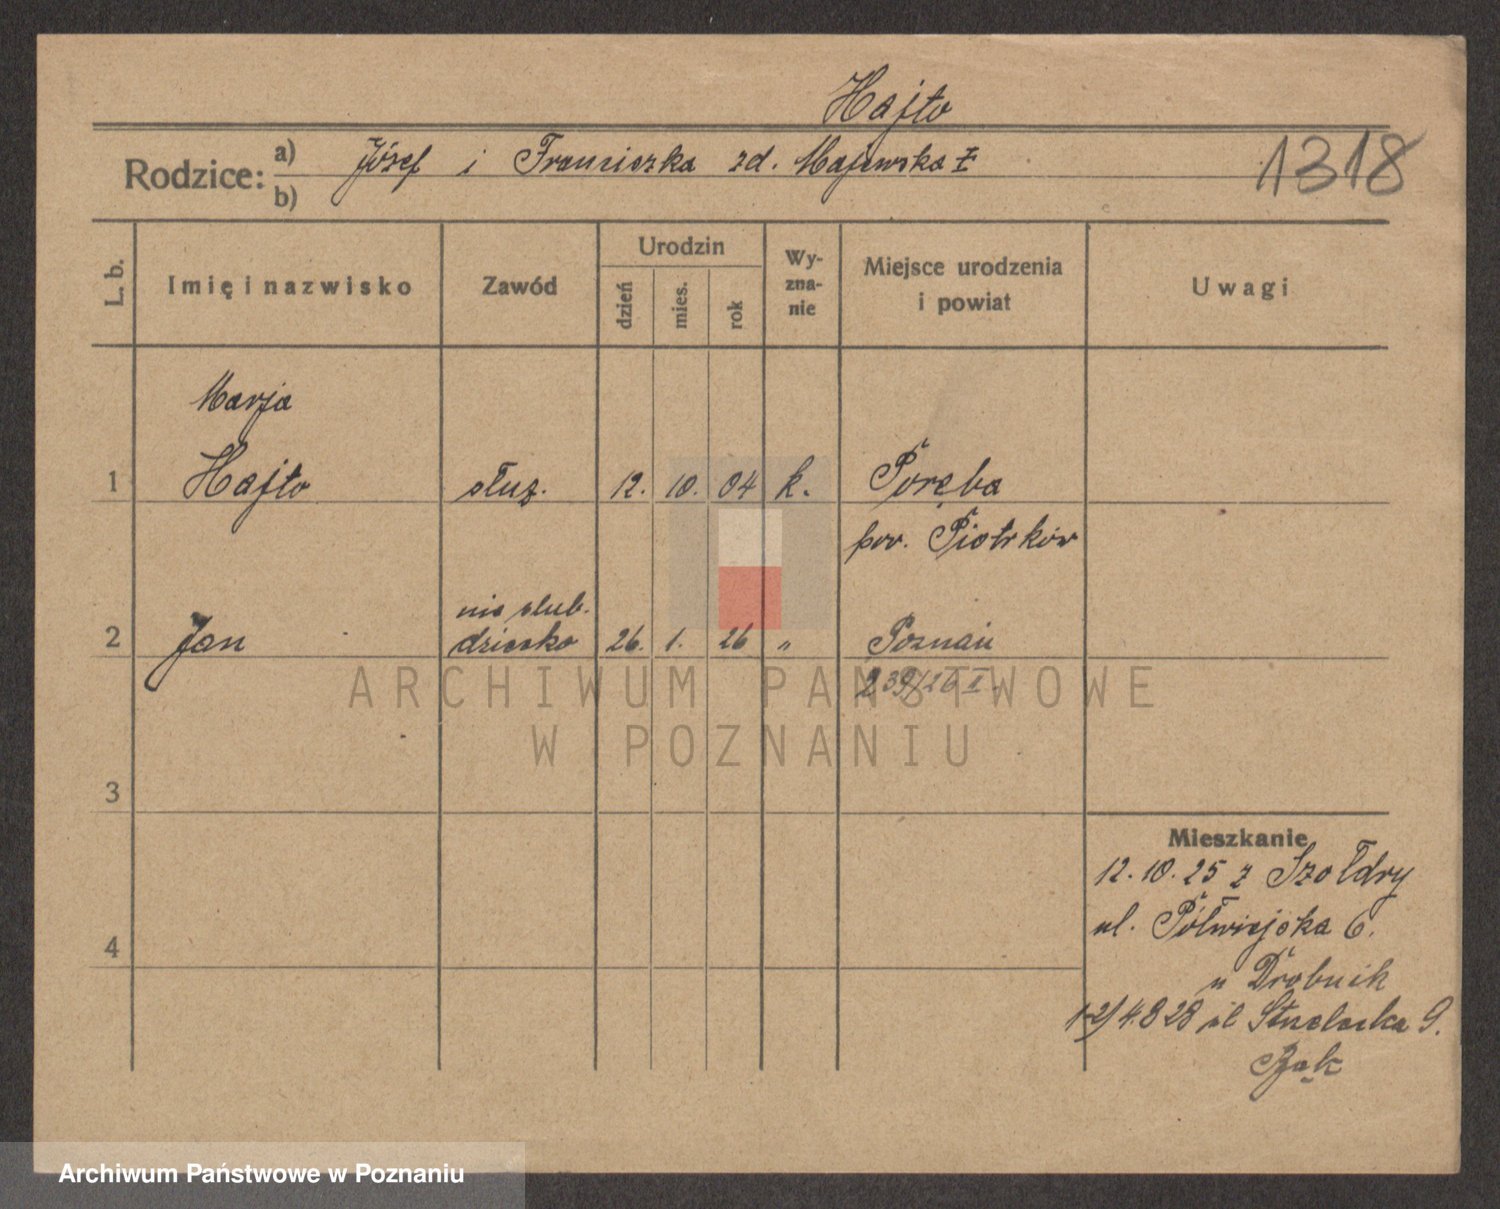 Hajto
Rodzice: a) Józef i Franciszka zd. Majewska
b)
1318
L. b.
Imię i nazwisko
Zawód
Urodzin
dzień
mies.
rok
Wy-
zna-
nie
Miejsce urodzenia
i powiat
Uwagi
Marja
1 Hajto służ. 12. 10. 04 k. Poręba
pow. Piotrków
nieślub.
2 Jan dziecko 26. 1. 26 " Poznań
239/26 I.
ARCHIWUM PAŃSTWOWE
W POZNANIU
3
Mieszkanie
12.10.25 z Szołdry
ul. Półwiejska 6.
4
u Drobnik
1-2/4.8 28 ul Strzelecka 9.
Bąk
Archiwum Państwowe w Poznaniu